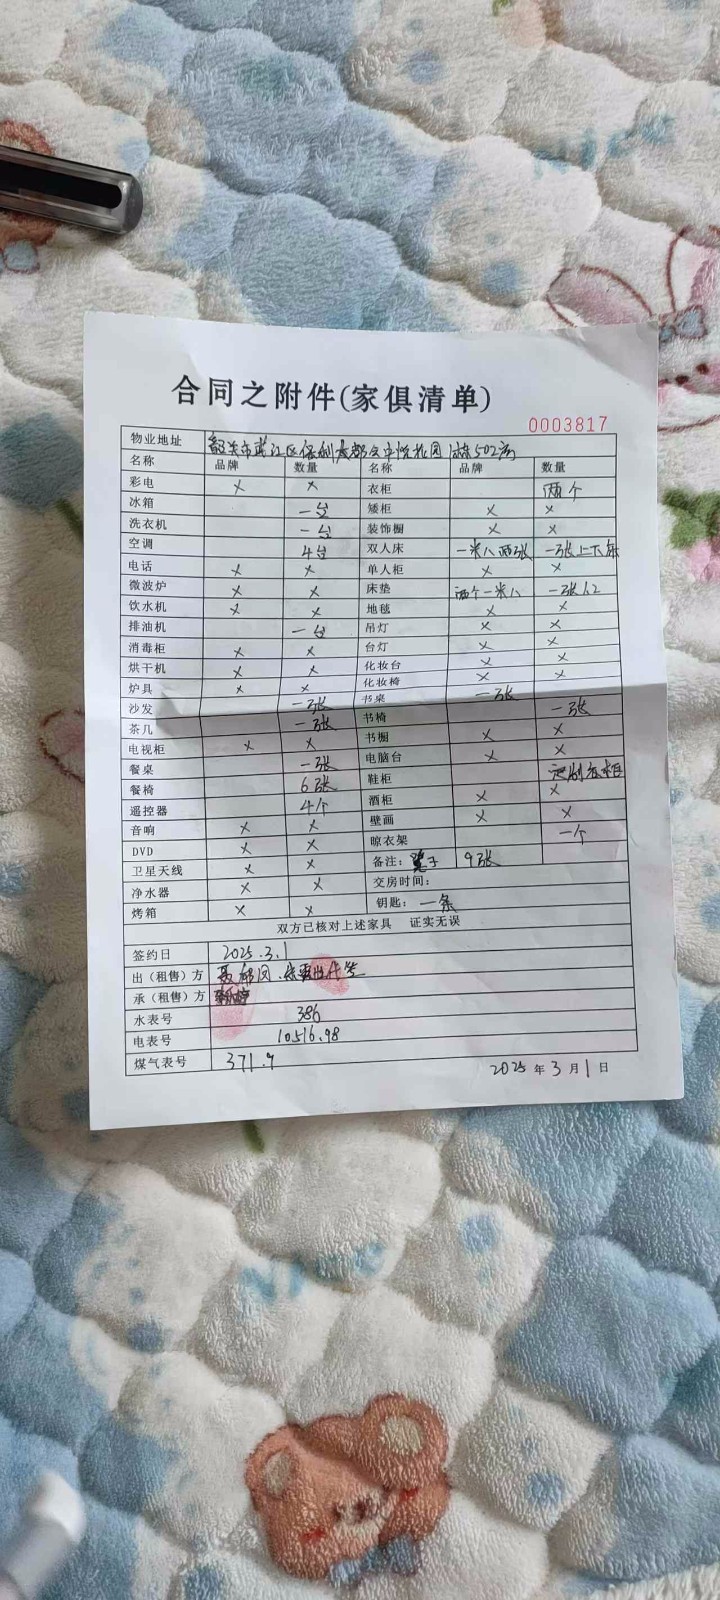 合同之附件(家俱清单)
0003817
物业地址 韶关市武江区保利 502房
名称 品牌 数量 名称 品牌 数量
彩电 × × 衣柜 两个
冰箱 一台 矮柜 × ×
洗衣机 一台 装饰橱 × ×
空调 4台 双人床 一米八两张 一张上下床
电话 × × 单人柜 × ×
微波炉 × × 床垫 两个一米八 一张1.2
饮水机 × × 地毯 × ×
排油机 一台 吊灯 × ×
消毒柜 × × 台灯 × ×
烘干机 × × 化妆台 × ×
炉具 × × 化妆椅 × ×
沙发 一张 书桌 一张
茶几 一张 书椅 一张
电视柜 × × 书橱 × ×
餐桌 一张 电脑台 × ×
餐椅 6张 鞋柜 定制
遥控器 4个 酒柜 × ×
音响 × × 壁画 × ×
DVD × × 晾衣架 一个
卫星天线 × × 备注: 凳子 9张
净水器 × × 交房时间:
烤箱 × × 钥匙: 一条
双方已核对上述家具 证实无误
签约日 2025.3.1
出（租售）方
承（租售）方
水表号 386
电表号 10516.98
煤气表号 371.9
2025年3月1日